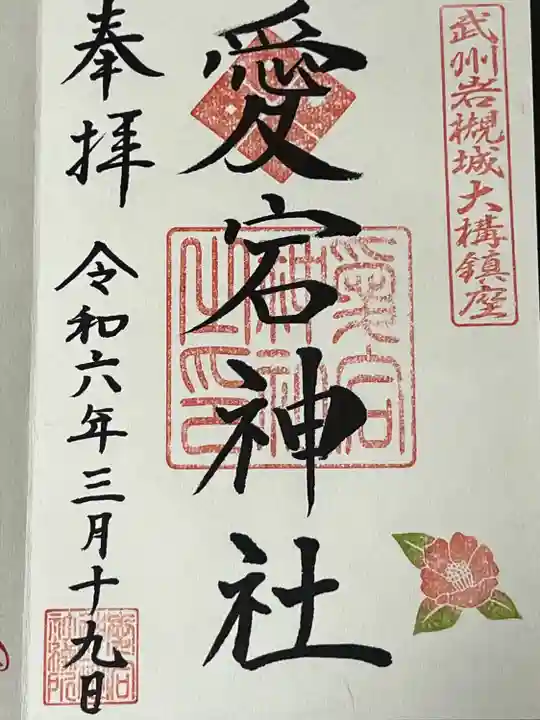 武州岩槻城大構鎮座
愛宕神社
愛宕神社之印
奉拝
令和六年三月十九日